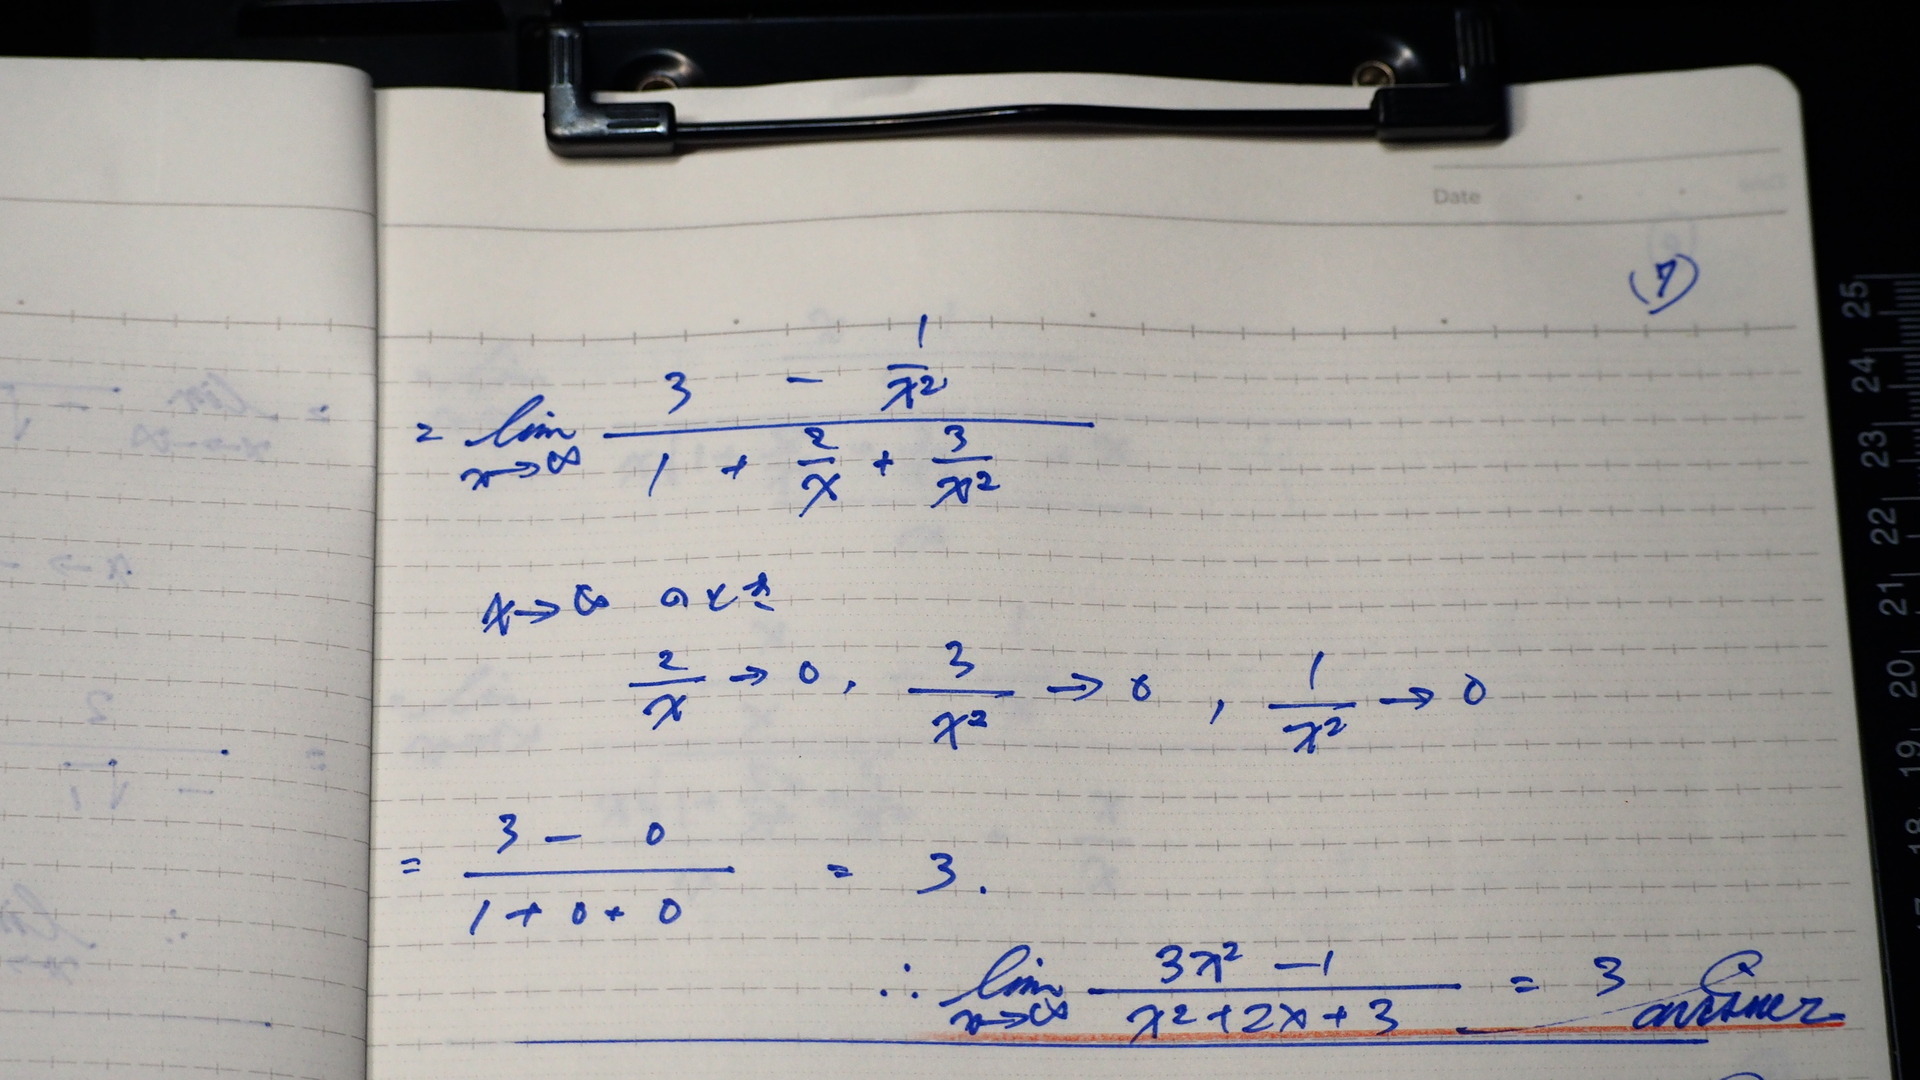 Date
(7)
= lim x→∞ (3 - 1/x²) / (1 + 2/x + 3/x²)
x→∞ のとき
2/x → 0, 3/x² → 0, 1/x² → 0
= (3 - 0) / (1 + 0 + 0) = 3.
∴ lim x→∞ (3x² - 1) / (x² + 2x + 3) = 3 answer
25
24
23
22
21
20
19
18
17